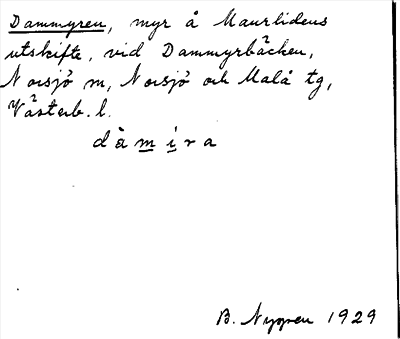 Dammyren, myr å Maurlidens
utskifte, vid Dammyrbäcken,
Norsjö sn, Norsjö och Malå tg,
Västerb. l.
dàmira
B. Nygren 1929